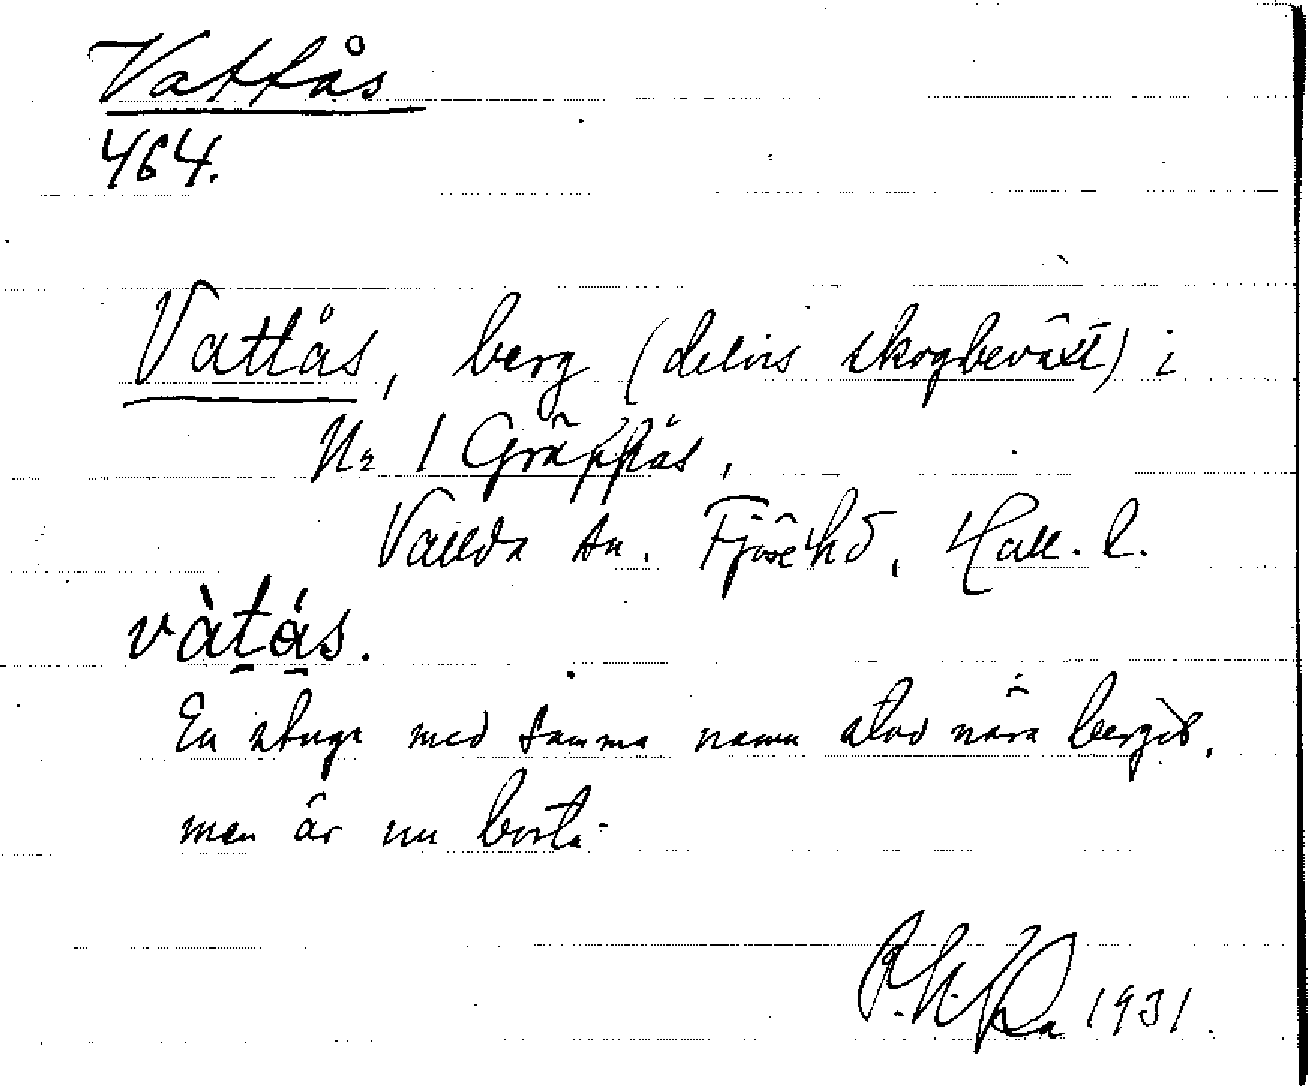 Vattås
464.
Vattås, berg (delvis skogbeväxt) i
Nr 1 Gräppås,
Vallda sn. Fjäre hd, Hall. l.
vàtás.
En stuga med samma namn stod nära berget,
men är nu borta.
1931.